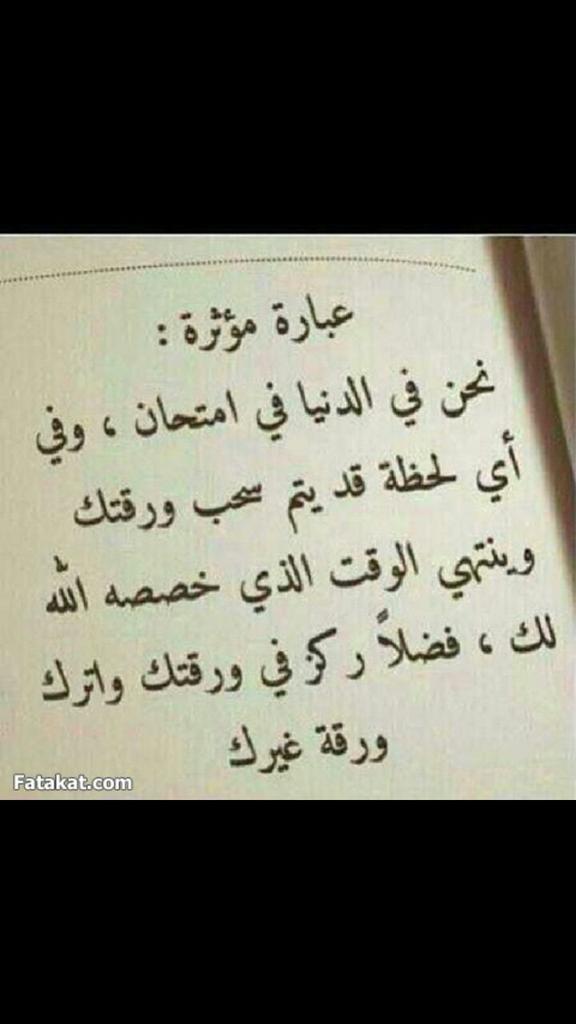 عبارة مؤثرة :
نحن في الدنيا في امتحان ، وفي
أي لحظة قد يتم سحب ورقتك
وينتهي الوقت الذي خصصه الله
لك ، فضلاً ركز في ورقتك واترك
ورقة غيرك
Fatakat.com